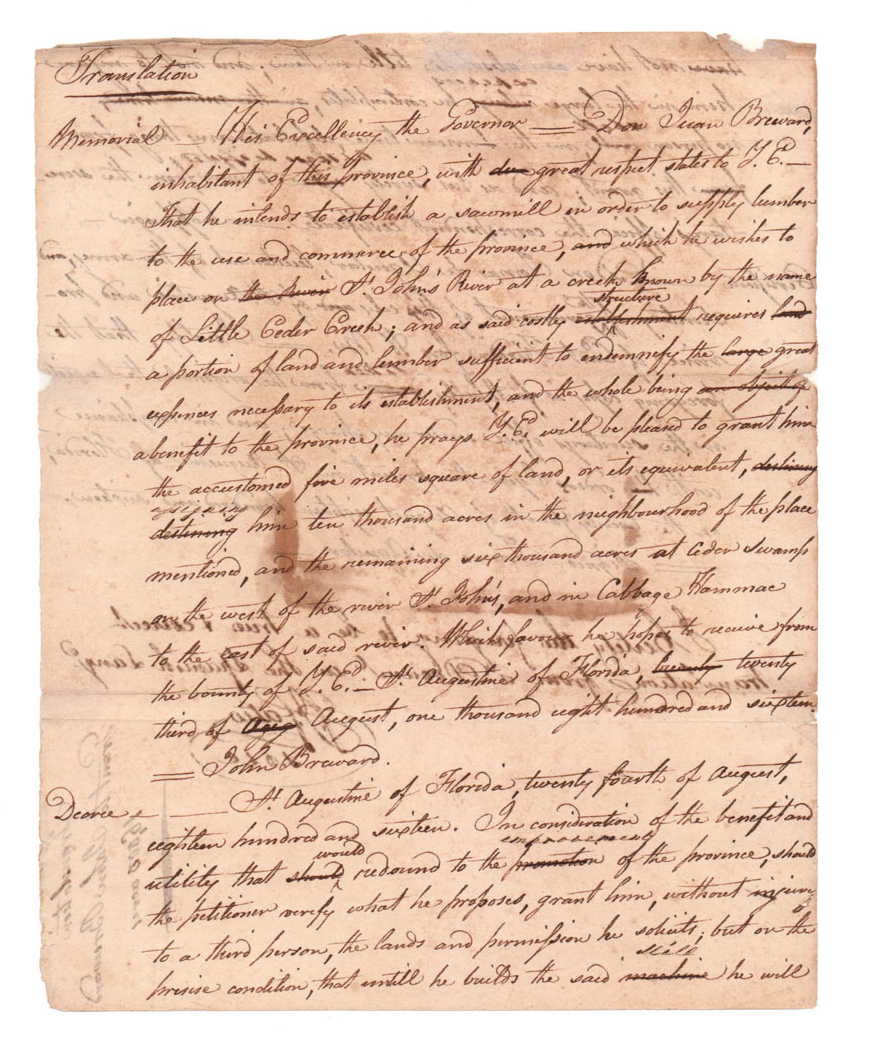 Translation
Memorial — His Excellency the Governor = Don Juan Breward,
inhabitant of this province, with due great respect states to Y. E. —
That he intends to establish a sawmill in order to supply lumber
to the use and commerce of the province, and which he wishes to
place on the River St John's River at a creek known by the name
structure
of Little Ceder Creek; and as said costly establishment requires land
a portion of land and lumber sufficient to indemnify the large great
expences necessary to its establishment, and the whole being an object of
a benefit to the province, he prays Y. E. will be pleased to grant him
the accustomed five miles square of land, or its equivalent, destining
destining him ten thousand acres in the neighbourhood of the place
mentioned, and the remaining six thousand acres at Ceder Swamp
on the west of the river St John's, and in Cabbage Hammac
to the east of said river. Which favour he hopes to receive from
the bounty of Y. E. — St Augustine of Florida, twenty twenty
third of Aug August, one thousand eight hundred and sixteen.
= John Breward.
Decree — — St Augustine of Florida, twenty fourth of August,
eighteen hundred and sixteen. In consideration of the benefit and
would improvement
utility that should redound to the promotion of the province, should
the petitioner verify what he proposes, grant him, without injury
to a third person, the lands and permission he solicits; but on the
Mill
presise condition, that untill he builds the said machine he will